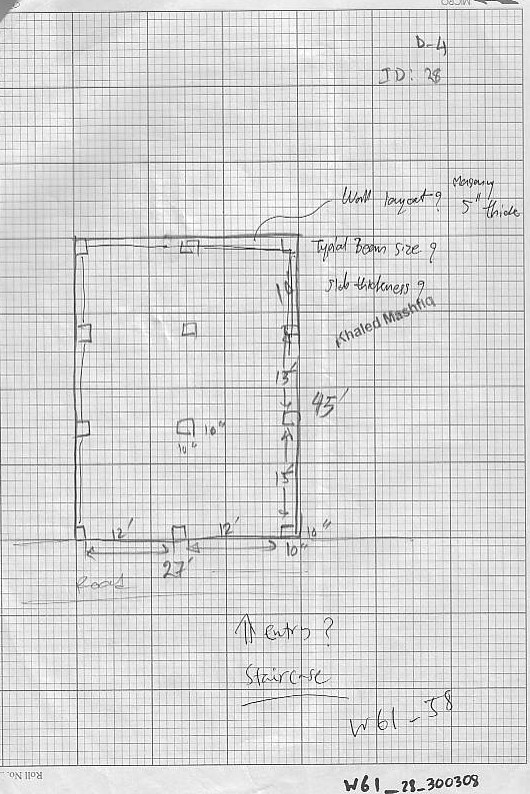 D-4
ID: 28
Wall layout? Masonry
5" thick
Typical Beam size?
slab thickness?
Khaled Mashfiq
13'
45'
10"
10"
15'
12'
12'
10"
10"
27'
Road
entry?
Staircase
W61-58
Roll No.
W61_28_300308